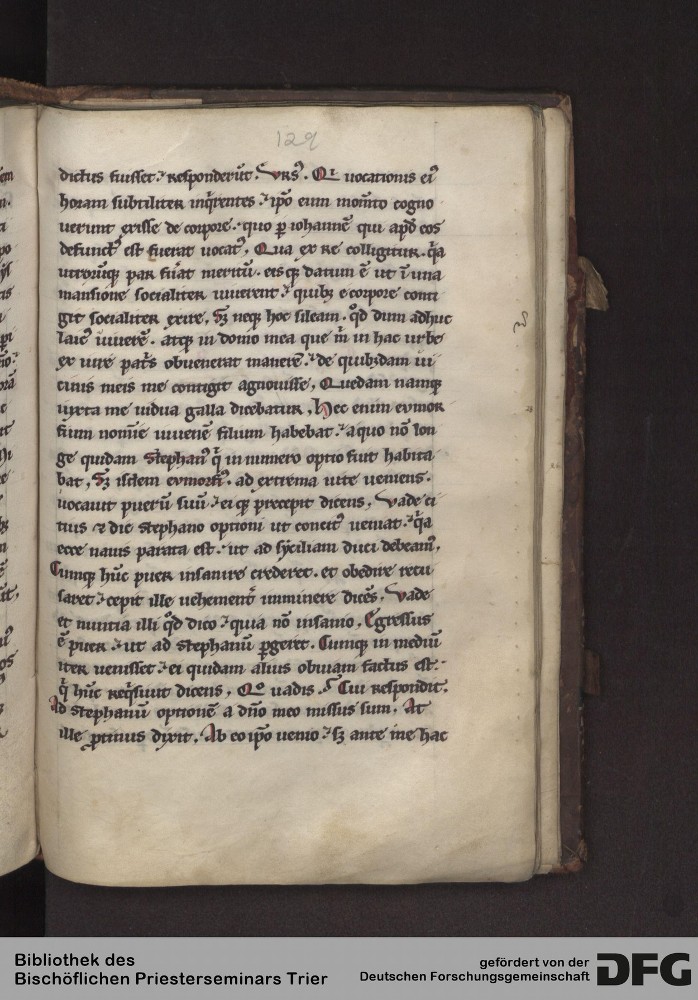 129
dictus fuisset. responderūt. Vrsꝰ. Qi uocationis eiꝰ
horam subtiliter inqͥrentes. ip̄o eum mom̄to cogno
uerunt exisse de corpore. quo ꝑ iohannē qui apd̄ eos
defunctꝰ est fuerat uocatꝰ. Qua ex re colligitur. qͥa
utrorūq; par fuat meritū. eisq; datum ē ut ī una
mansione socialiter uiuerent. quibꝫ e corpore conti
git socialiter exire. Sꝫ neq; hoc sileam. qd̄ dum adhuc
laicꝰ uiuerē. atq; in domo mea que m̄ in hac urbe
ex iure pat̄s obuenerat manerē. de quibꝫdam ui
cinis meis me contigit agnouisse. Quedam namq;
iuxta me uidua galla dicebatur. Hec enim eumor
fium nomīe iuuenē filium habebat. a quo nō lon
ge quidam Stephanꝰ q̄ in numero optio fuit habita
bat. Sꝫ isdem eumorfiꝰ. ad extrema uite ueniens.
uocauit puerū suū. eiq; precepit dicens. Vade ci
tius & dic stephano optioni ut concitꝰ ueniat. qͥa
ecce nauis parata est. ut ad syciliam duci debeamꝰ.
Cumq; hūc puer insanire crederet. et obedire recu
saret. cepit ille uehementr̄ imminere dicēs. Vade
et nuntia illi qd̄ dico. quia nō insanio. Egressus
ē puer. ut ad stephanū ꝑgeret. Cumq; in mediū
iter uenisset. ei quidam alius obuiam factus est.
q̄ hūc reqͥsiuit dicens. Qͦ uadis. Cui respondit.
Ad stephanū optionē a dn̄o meo missus sum. At
ille ꝓtinus dixit. Ab eo ip̄o uenio. sꝫ ante me hac
Bibliothek des
Bischöflichen Priesterseminars Trier
gefördert von der
Deutschen Forschungsgemeinschaft
DFG